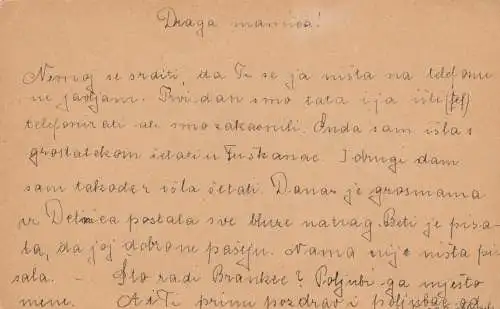 Draga mamica!
Nemoj se srditi, da Ti se ja ništa na telefonu
ne javljam. Prvi dan smo tata i ja išli (tel)
telefonirati ali smo zakasnili. Onda sam išla s
grostatekom šetati u Tuškanac. I drugi dan
sam također išla šetati. Danas je grosmama
iz Delnica poslala sve bluze natrag. Beti je pisa-
la, da joj dobro ne pašeju. Nama nije ništa pi-
sala. – Što radi Brankec? Poljubi ga mješto
mene. A i Ti primi pozdrav i poljubac od